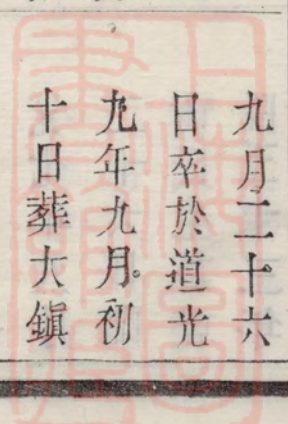 九月二十六
日卒於道光
九年九月。初
十日葬大鎭